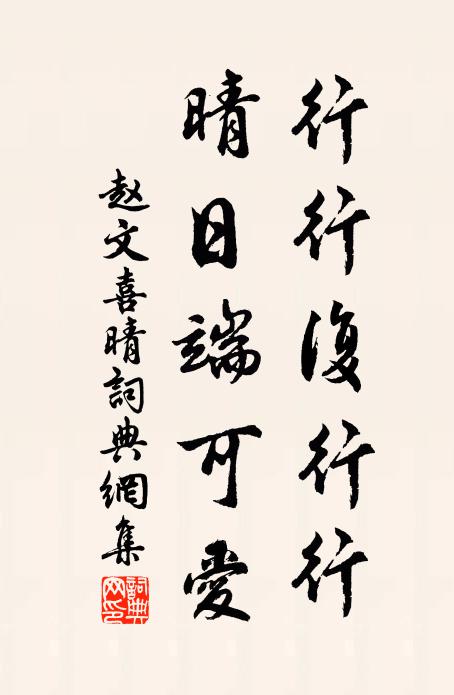 行行復行行
晴日端可愛
赵文喜晴詞典網集
詞典網印